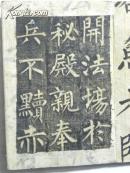 開法場於
秘殿親奉
兵不黷赤